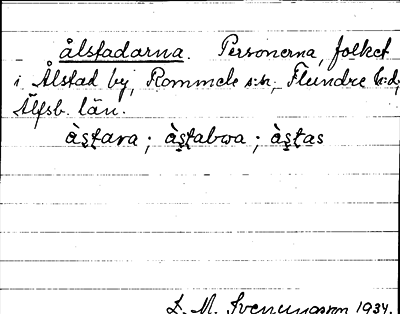 ålstadarna. Personerna, folket
i Ålstad by, Rommele s:n, Flundre h:d,
Älfsb. län.
às̱ṯara; às̱ṯabwa; às̱ṯas
D. M. Svenungsson 1934.